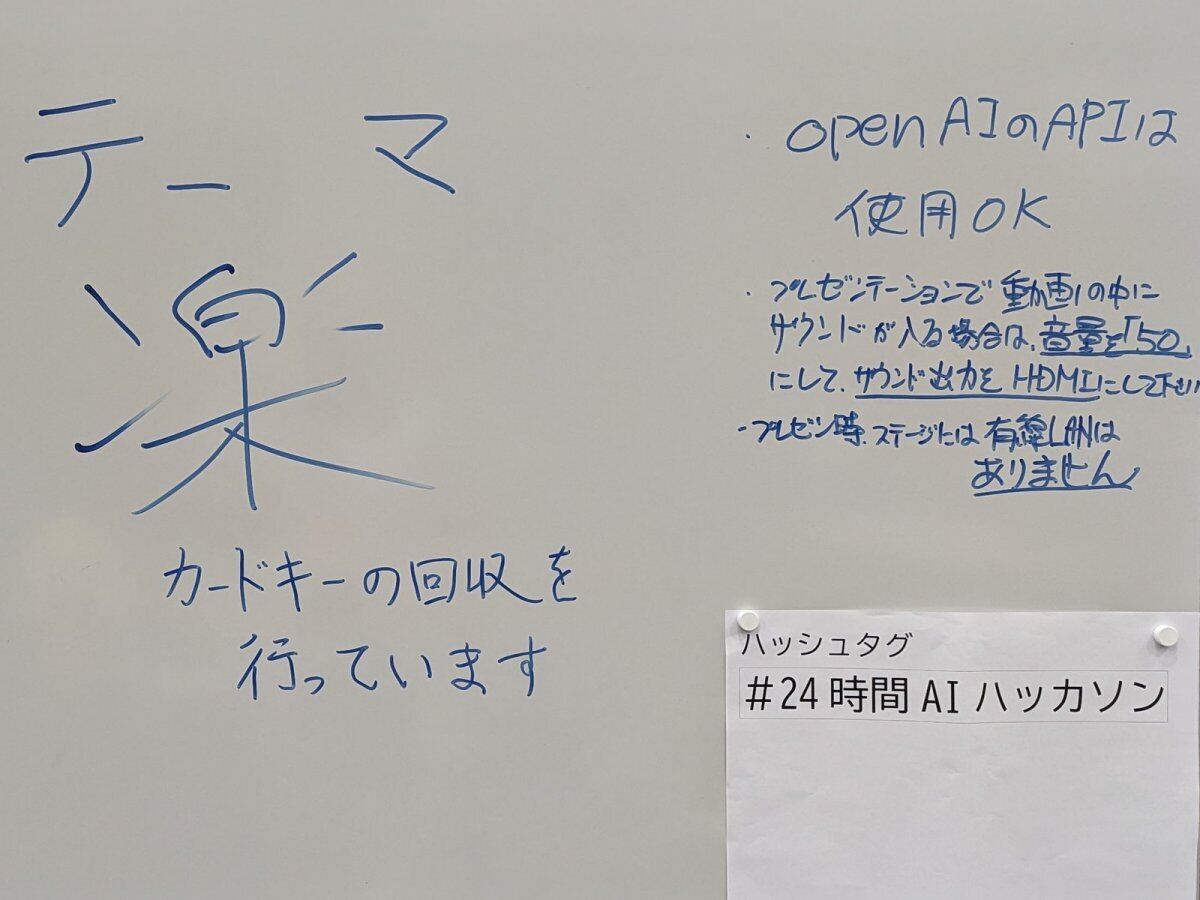 テーマ
楽
カードキーの回収を
行っています
・openAIのAPIは
使用OK
・プレゼンテーションで動画の中に
サウンドが入る場合は、音量を「50」
にして、サウンド出力をHDMIにして下さい
・プレゼン時、ステージには有線LANは
ありません
ハッシュタグ
#24時間AIハッカソン